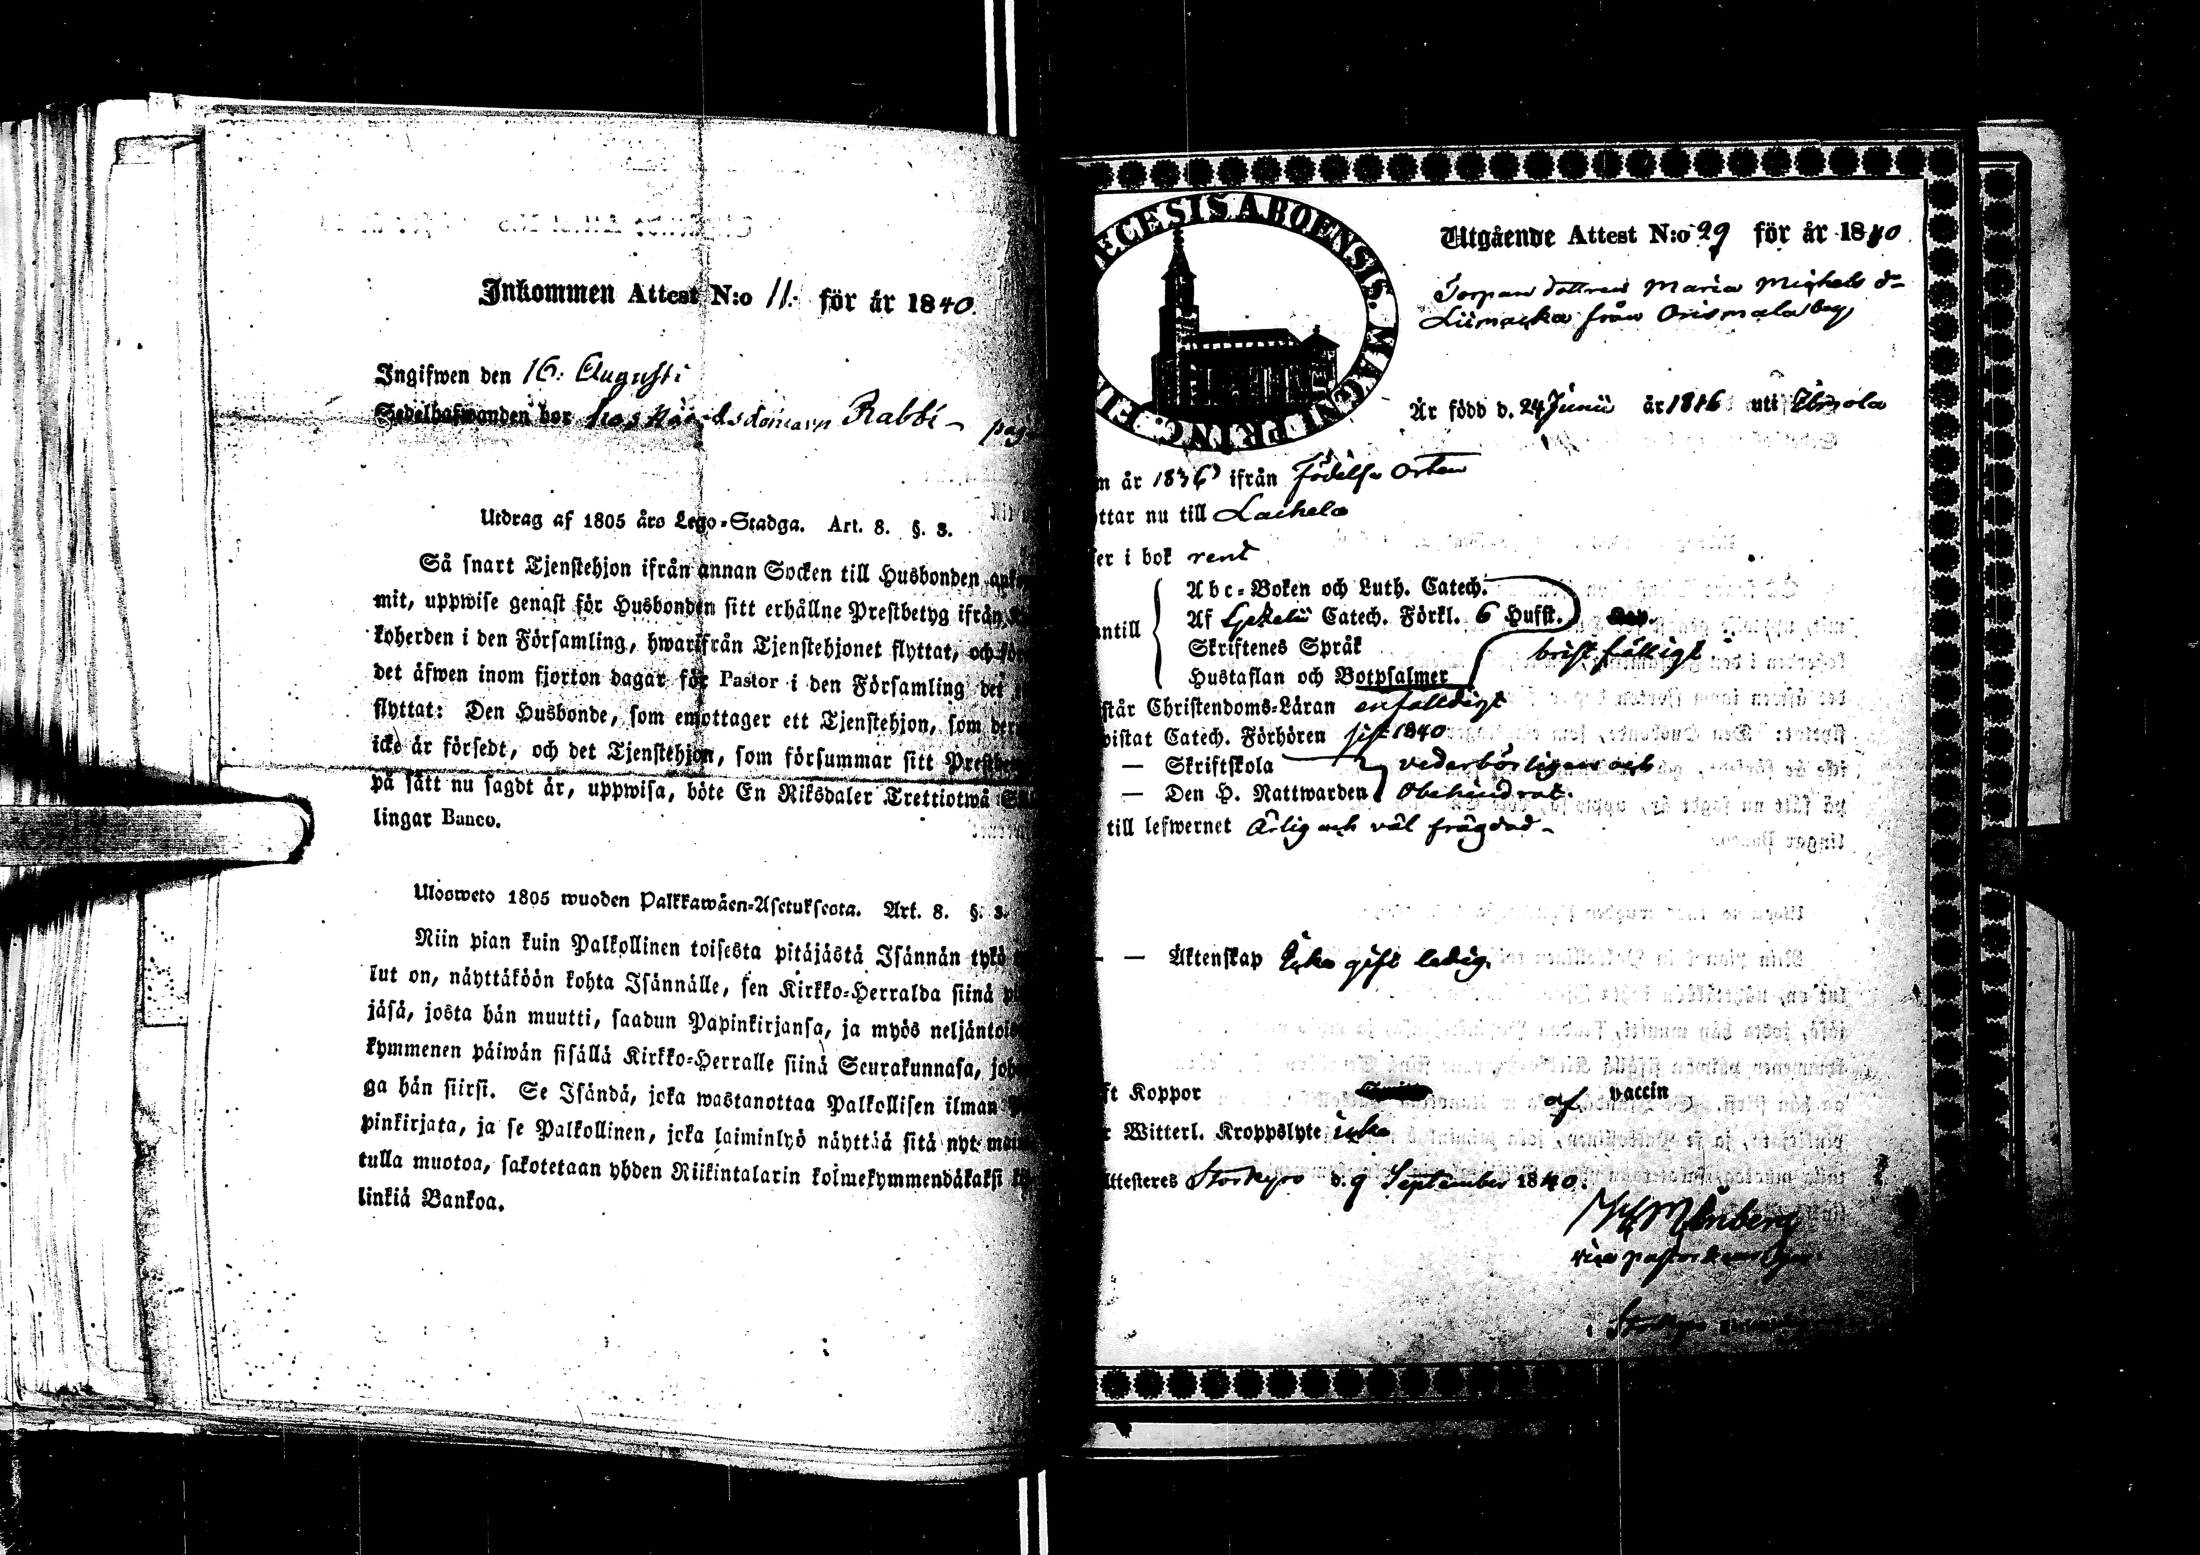 Inkommen Attest N:o 11. för år 1840.
Ingifwen den 16. Augusti
Sedelhafwanden bor hos Häradsdomarn Rabbi – pag
Utdrag af 1805 års Lego-Stadga. Art. 8. §. 3.
Så snart Tjenstehjon ifrån annan Socken till Husbonden
mit, uppwise genast för Husbonden sitt erhållne Prestbetyg ifrån
koherden i den Församling, hwarifrån Tjenstehjonet flyttat, och
det äfwen inom fjorton dagar för Pastor i den Församling
flyttat: Den Husbonde, som emottager ett Tjenstehjon, som
icke är försedt, och det Tjenstehjon, som försummar sitt
på sätt nu sagdt är, uppwisa, böte En Riksdaler Trettiotwå
lingar Banco.
Ulosweto 1805 wuoden Palkkawäen-Asetuksesta. Art. 8. §. 3.
Niin pian kuin Palkollinen toisesta pitäjästä Isännän tykö
lut on, näyttäköön kohta Isännälle, sen Kirkko-Herralda siinä
jäsä, josta hän muutti, saadun Papinkirjansa, ja myös neljäntois
kymmenen päiwän sisällä Kirkko-Herralle siinä Seurakunnasa,
ga hän siirsi. Se Isändä, joka wastanottaa Palkollisen ilman
pinkirjata, ja se Palkollinen, joka laiminlyö näyttää sitä nyt
tulla muotoa, sakotetaan yhden Riikintalarin kolmekymmendäkaksi
linkiä Bankoa.
ECESIS ABOENSIS. MAGNI PRINC.
Utgående Attest N:o 29 för år 1840.
Torpare dottren Maria Michels d-
från Orismala by
Är född d. 24 Junii år 1816 uti
n år 1836 ifrån Födelse Orten
ttar nu till Laihela
er i bok rent
ntill
Abc-Boken och Luth. Catech.
Af Catech. Förkl. 6 Hufst.
Skriftenes Språk bristfälligt
Hustaflan och Botpsalmer
står Christendoms-Läran enfaldigt
istat Catech. Förhören sist 1840
— Skriftskola vederbörligen och
— Den H. Nattwarden obehindrat.
till lefwernet Ärlig och väl frägdad –
— Äktenskap Icke gift ledig.
ft Koppor af vaccin
r Witterl. Kroppslyte icke
ttesteres Storkyro d. 9 September 1840.
vice pastor
i Storkyro